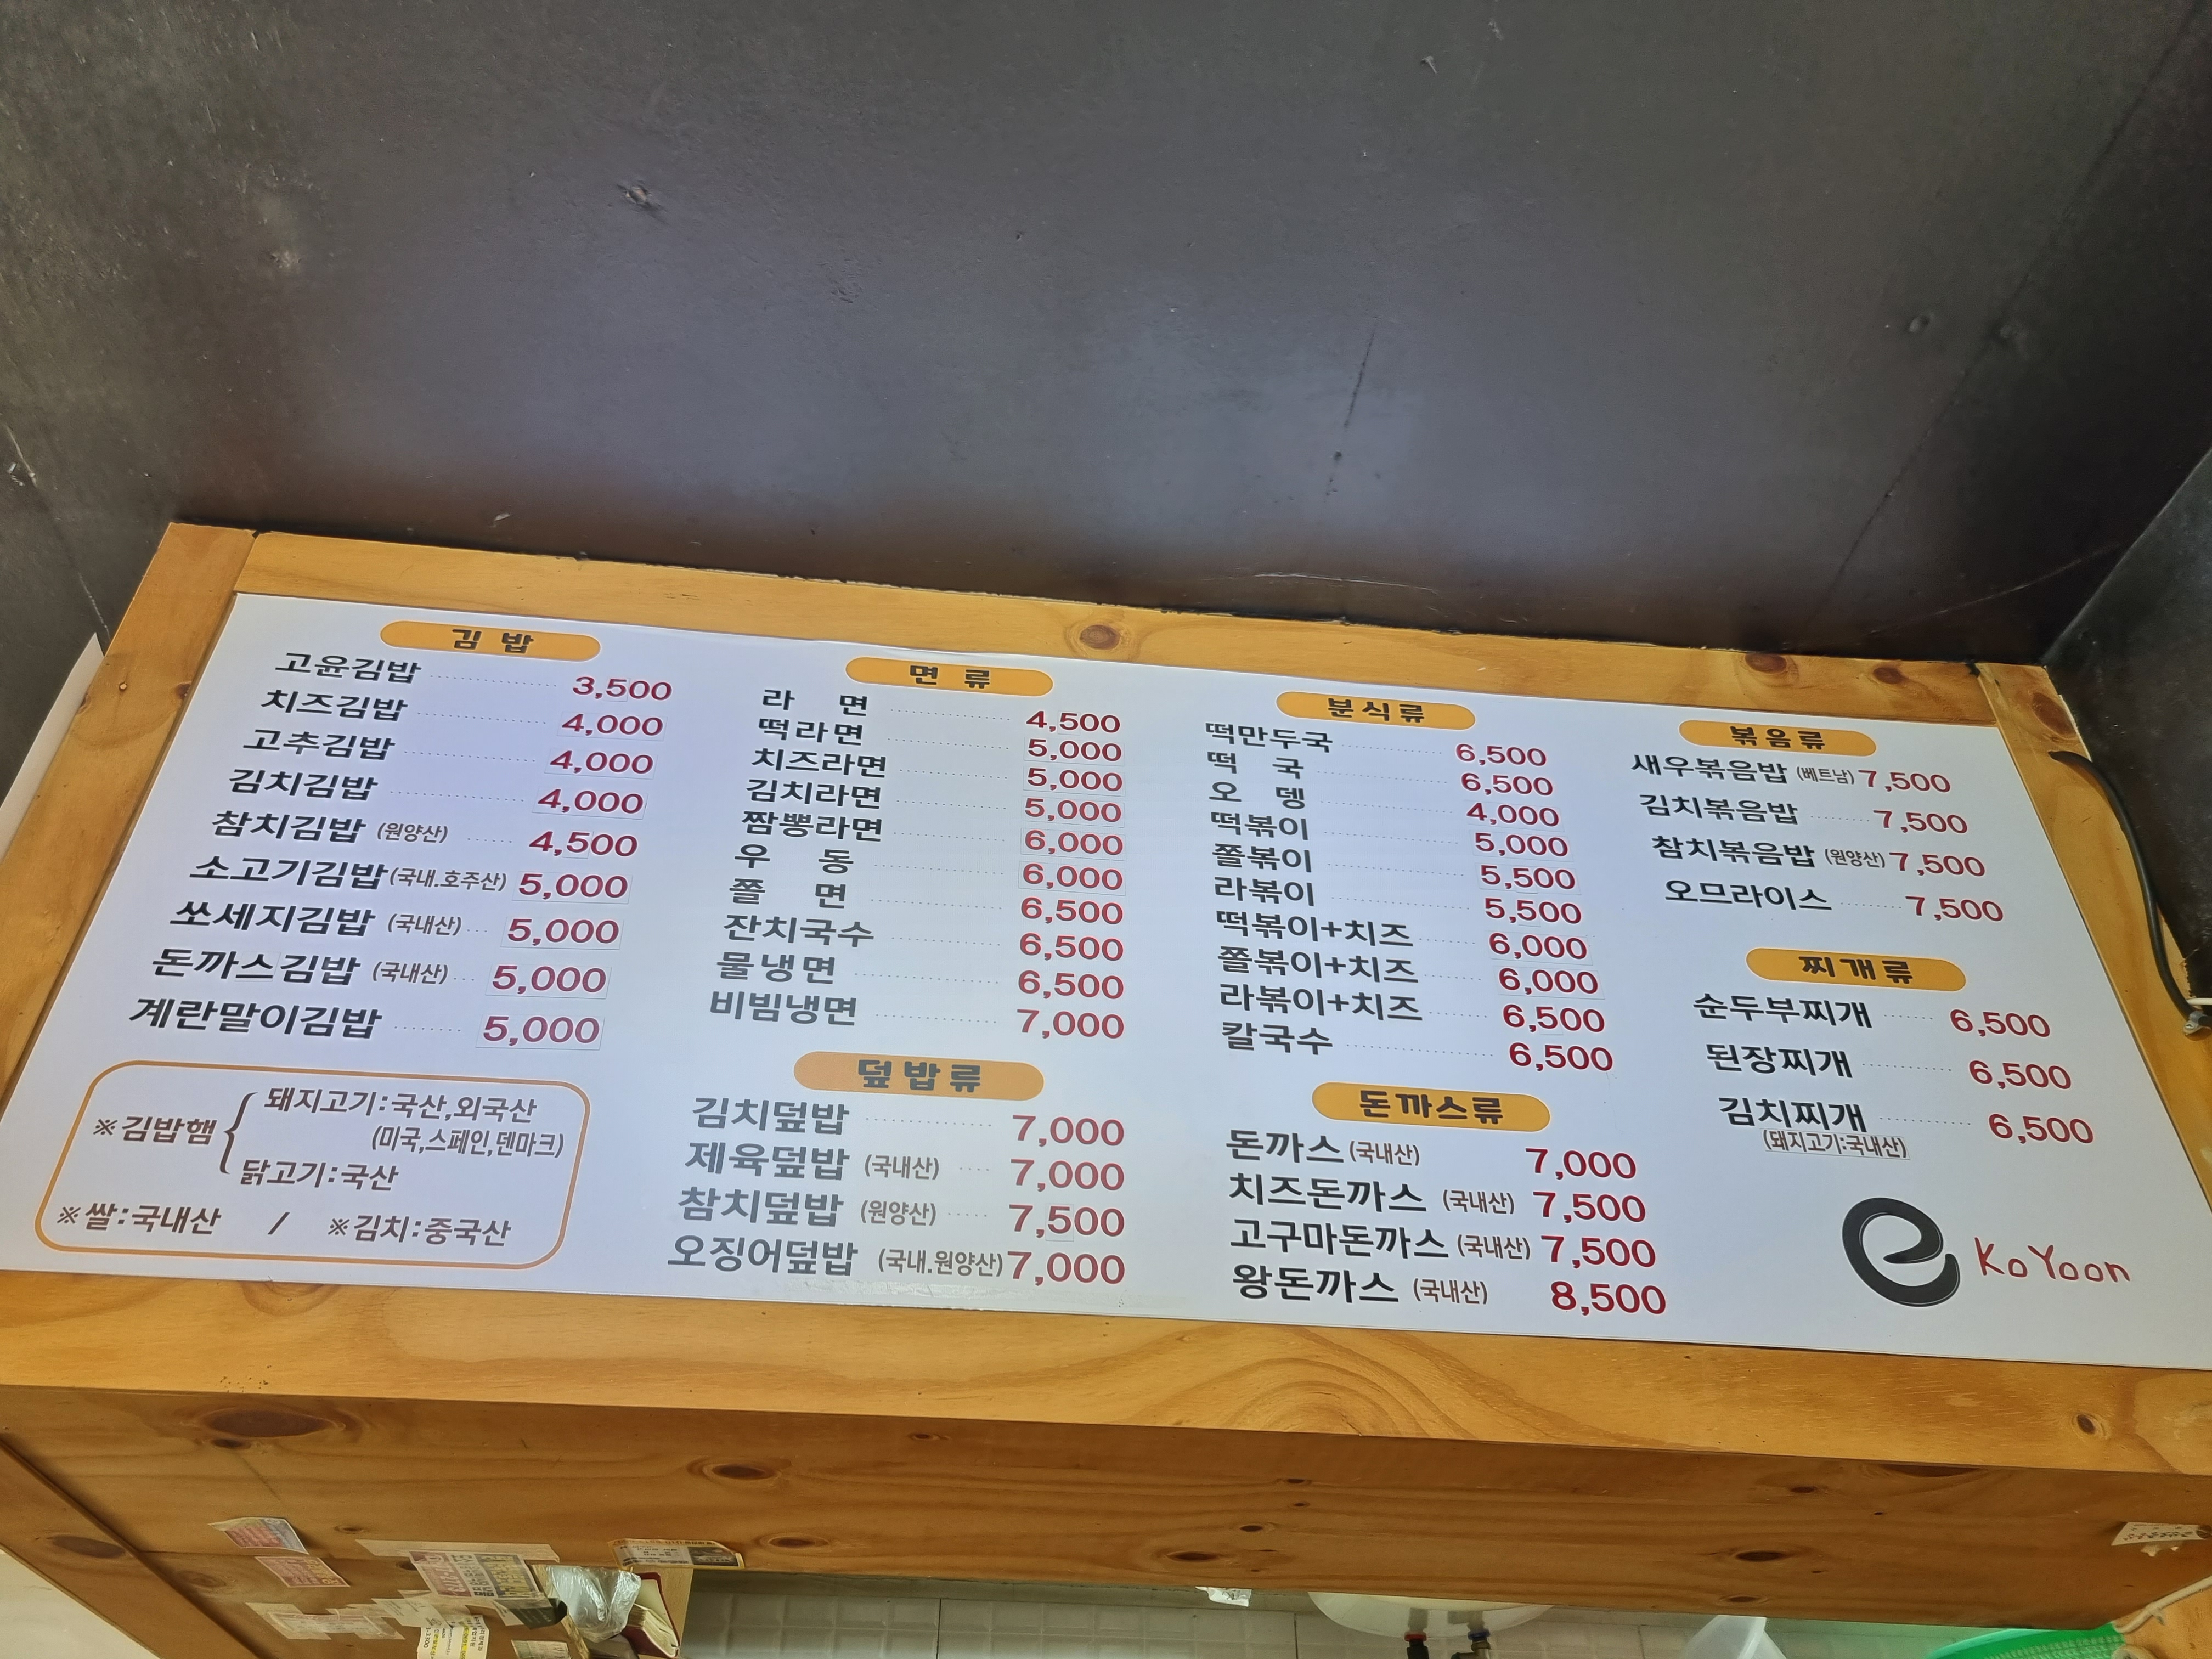 김밥
고윤김밥 3,500
치즈김밥 4,000
고추김밥 4,000
김치김밥 4,000
참치김밥 (원양산) 4,500
소고기김밥 (국내.호주산) 5,000
쏘세지김밥 (국내산) 5,000
돈까스김밥 (국내산) 5,000
계란말이김밥 5,000
※김밥햄
돼지고기:국산,외국산
(미국,스페인,덴마크)
닭고기:국산
※쌀:국내산 / ※김치:중국산
면류
라면 4,500
떡라면 5,000
치즈라면 5,000
김치라면 5,000
짬뽕라면 6,000
우동 6,000
쫄면 6,500
잔치국수 6,500
물냉면 6,500
비빔냉면 7,000
덮밥류
김치덮밥 7,000
제육덮밥 (국내산) 7,000
참치덮밥 (원양산) 7,500
오징어덮밥 (국내.원양산) 7,000
분식류
떡만두국 6,500
떡국 6,500
오뎅 4,000
떡볶이 5,000
쫄볶이 5,500
라볶이 5,500
떡볶이+치즈 6,000
쫄볶이+치즈 6,000
라볶이+치즈 6,500
칼국수 6,500
돈까스류
돈까스 (국내산) 7,000
치즈돈까스 (국내산) 7,500
고구마돈까스 (국내산) 7,500
왕돈까스 (국내산) 8,500
볶음류
새우볶음밥 (베트남) 7,500
김치볶음밥 7,500
참치볶음밥 (원양산) 7,500
오므라이스 7,500
찌개류
순두부찌개 6,500
된장찌개 6,500
김치찌개 6,500
(돼지고기:국내산)
e KoYoon